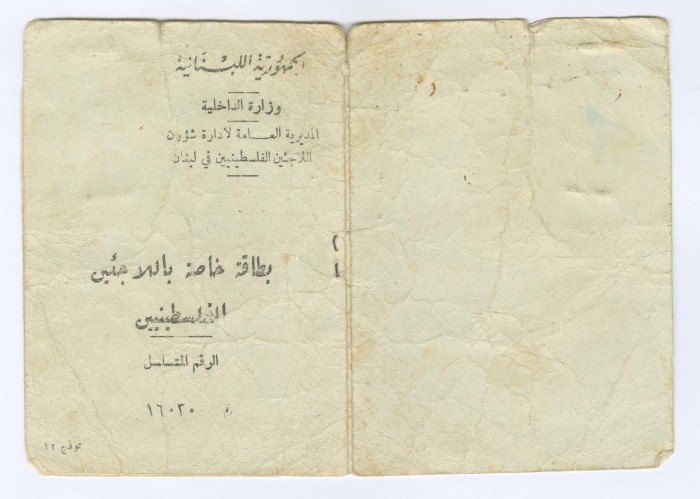 الجمهورية اللبنانية
وزارة الداخلية
المديرية العامة لادارة شؤون
اللاجئين الفلسطينيين في لبنان
بطاقة خاصة باللاجئين
الفلسطينيين
الرقم المتسلسل
١٦٠٣٠
نموذج ١٢